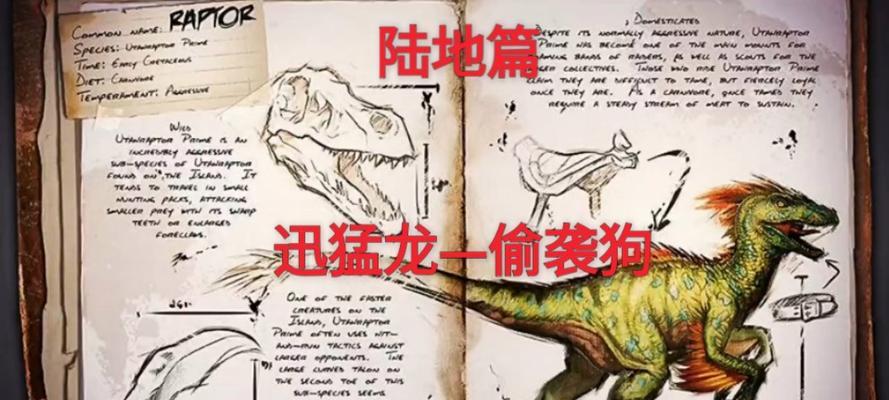 Common name: RAPTOR
Species: Utahraptor Prime
Time: Early Cretaceous
Diet: Carnivore
Temperament: Aggressive
Wild
Utahraptor Prime is an
incredibly aggressive
sub-species of Utahraptor
found on The Island. It
tends to travel in small
hunting packs, attacking
smaller prey with its sharp
teeth or enlarged
foreclaws.
One of the faster
creatures on the
Island, Utahraptor
Prime often uses hit-
and-run tactics against
larger opponents. The
large curved talon on
the second toe of this
sub-species seems
陆地篇
迅猛龙—偷袭狗
Domesticated
Despite its normally aggressive nature, Utahraptor
Prime has become one of the main mounts for
roaming bands of raiders, as well as scouts for the
larger collectives. Those who ride Utahraptor Prime
claim they are difficult to tame, but fiercely loyal
once they are. As a carnivore, once tamed they
require a steady stream of meat to sustain.